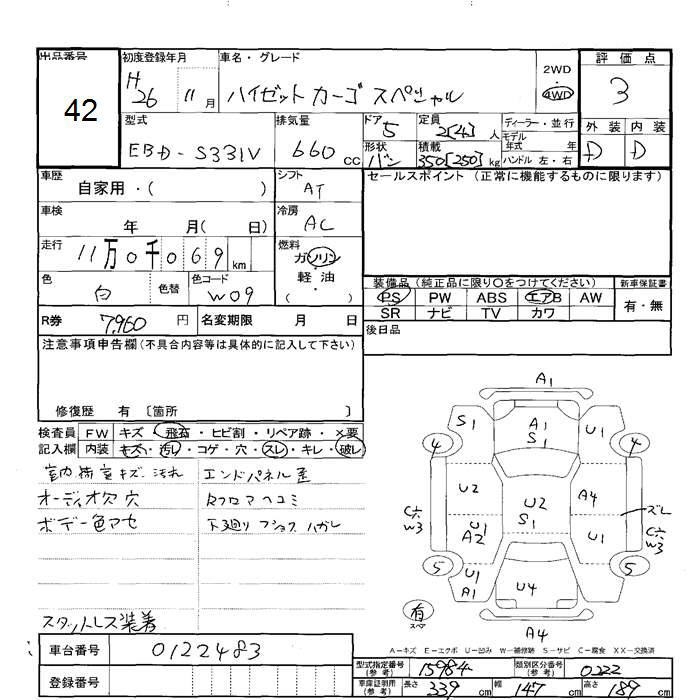 出品番号
42
初度登録年月
H26 11月
車名・グレード
ハイゼットカーゴスペシャル
2WD
4WD
評価点
3
型式
EBD-S331V
排気量
660cc
ドア
5
定員
2[4]人
形状
バン
積載
350[250]kg
ディーラー・並行
モデル年式 年
ハンドル 左・右
外装 内装
D D
車歴
自家用・( )
シフト
AT
セールスポイント (正常に機能するものに限ります)
車検
年 月( 日)
冷房
AC
走行
11万0千069km
燃料
ガソリン
軽油
( )
色
白
色替
色コード
W09
装備品(純正品に限り○をつけてください)
新車保証書
PS PW ABS エアB AW
SR ナビ TV カワ
有・無
R券 7,960円
名変期限 月 日
後日品
注意事項申告欄(不具合内容等は具体的に記入して下さい)
修復歴 有 〔箇所 〕
検査員
記入欄
FW キズ・飛石・ヒビ割・リペア跡・×要
内装 キズ・汚れ・コゲ・穴・スレ・キレ・破レ
室内荷室キズ・汚れ
エンドパネル歪
オーディオ欠 穴
ボデー色アセ
下廻り フショス ハガレ
スタットレス装着
A1
S1
A1
S1
U1
4
4
U2
U2
S1
A4
ズレ
C穴
W3
U1
A2
U1
C穴
W3
5
5
U1
A1
U4
有
スペア
A4
A-キズ E-エクボ U-凹み W-補修跡 S-サビ C-腐食 XX-交換済
車台番号
0122483
登録番号
型式指定番号
(参考)
15984
類別区分番号
(参考)
0222
車庫証明用
(参考)
長さ 339cm
幅 147cm
高さ 189cm